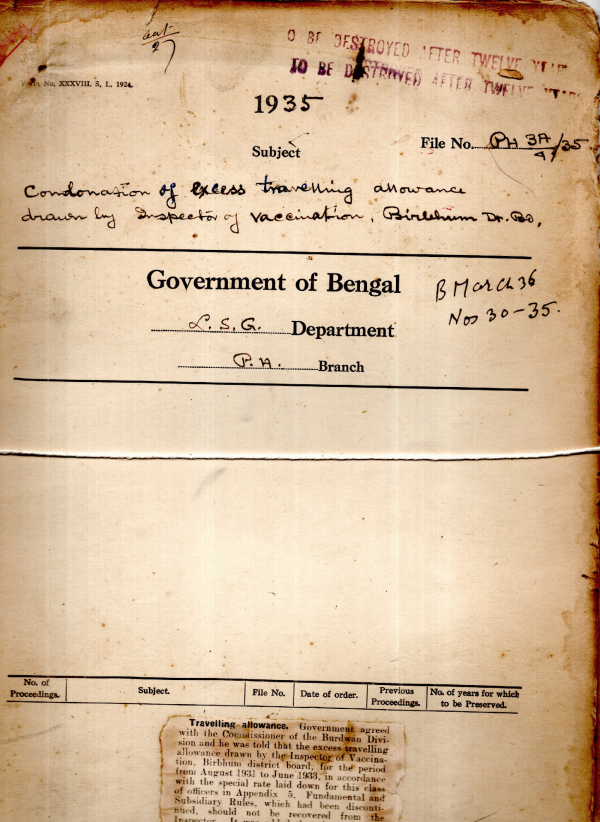 TO BE DESTROYED AFTER TWELVE
TO BE DESTROYED AFTER TWELVE YEARS
No. XXXVIII, S. L. 1924.
1935
Subject
File No. PH 3A/4/35
Condonation of excess travelling allowance
drawn by Inspector of Vaccination, Birbhum Dt. Bd.
Government of Bengal
B March 36
Nos 30-35.
L. S. G. Department
P. H. Branch
No. of Proceedings.
Subject.
File No.
Date of order.
Previous Proceedings.
No. of years for which to be Preserved.
Travelling allowance. Government agreed
with the Commissioner of the Burdwan Divi-
sion and he was told that the excess travelling
allowance drawn by the Inspector of Vaccina-
tion, Birbhum district board, for the period
from August 1931 to June 1933, in accordance
with the special rate laid down for this class
of officers in Appendix 5, Fundamental and
Subsidiary Rules, which had been disconti-
nued, should not be recovered from the
Inspector.